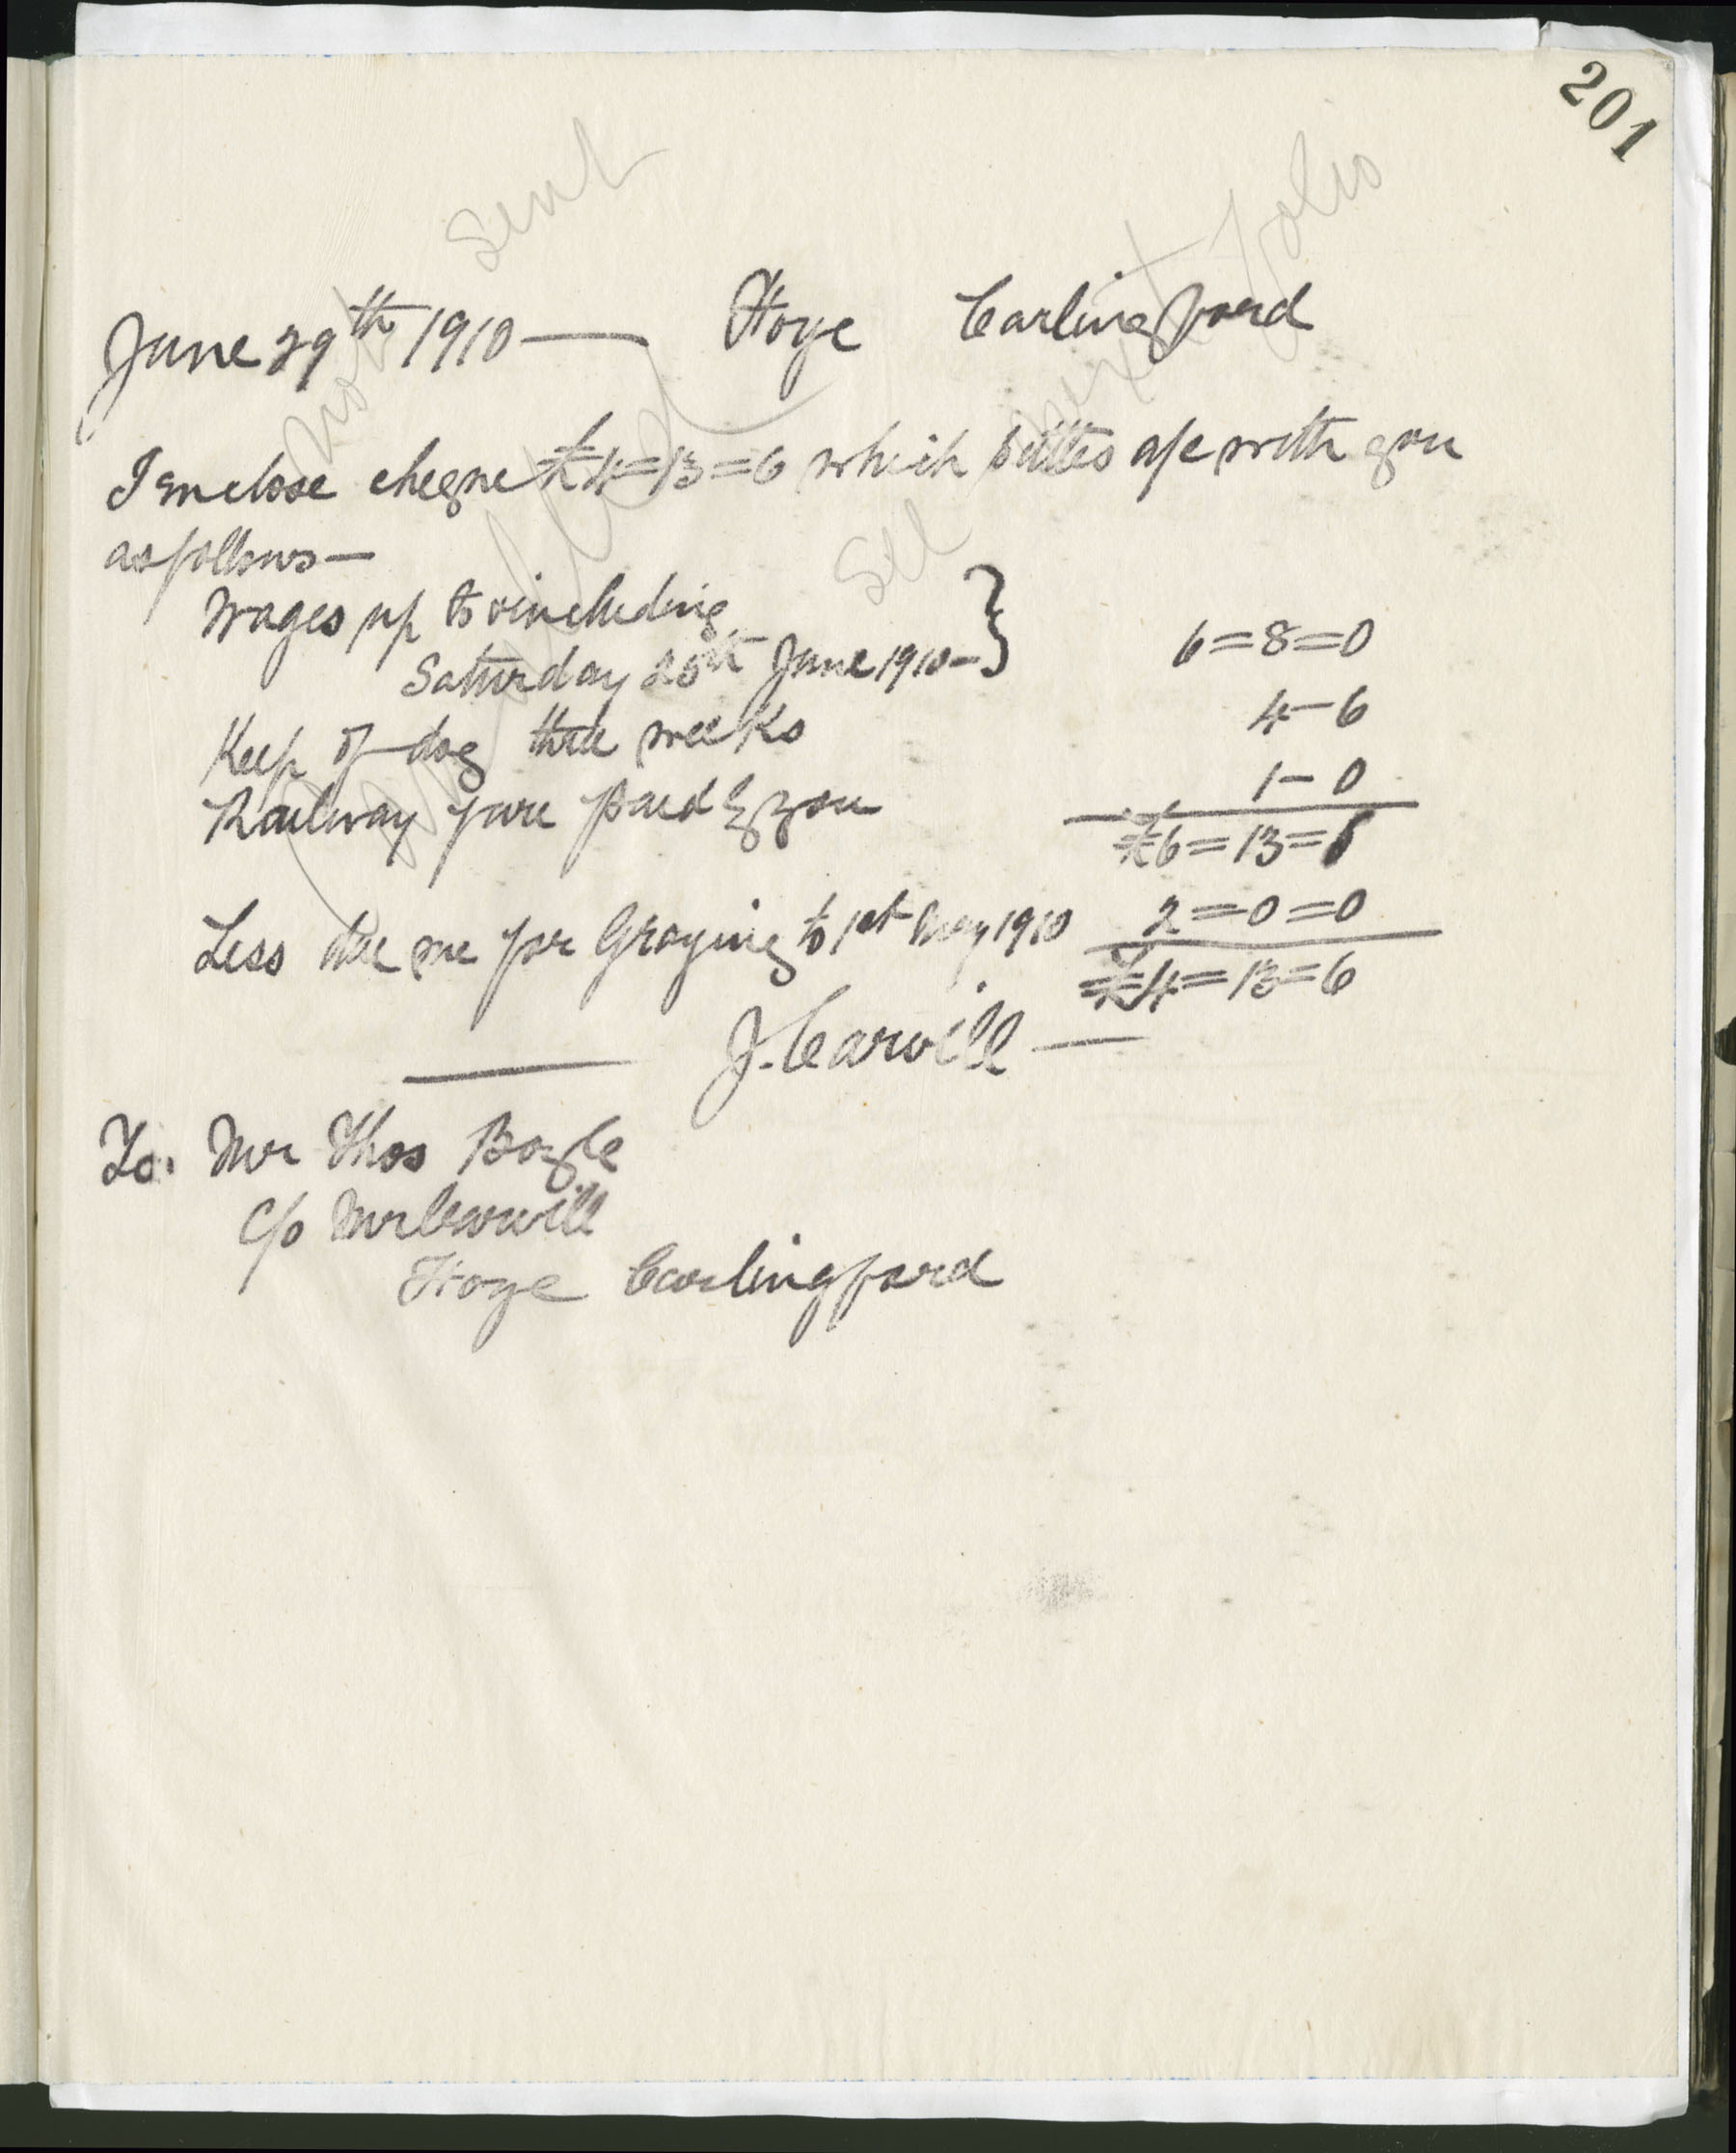 201
not sent
cancelled
see next folio
June 29th 1910 — Hoye Carlingford
I enclose cheque £4=13=6 which settles a/c with you
as follows—
Wages up to & including
Saturday 25th June 1910— } 6=8=0
Keep of dog three weeks 4-6
Railway fare paid by you 1-0
£6=13=6
Less due me for Grazing to 1st May 1910 2=0=0
£4=13=6
J. Carvill —
To. Mr Thos Boyle
c/o Mr Carvill
Hoye Carlingford